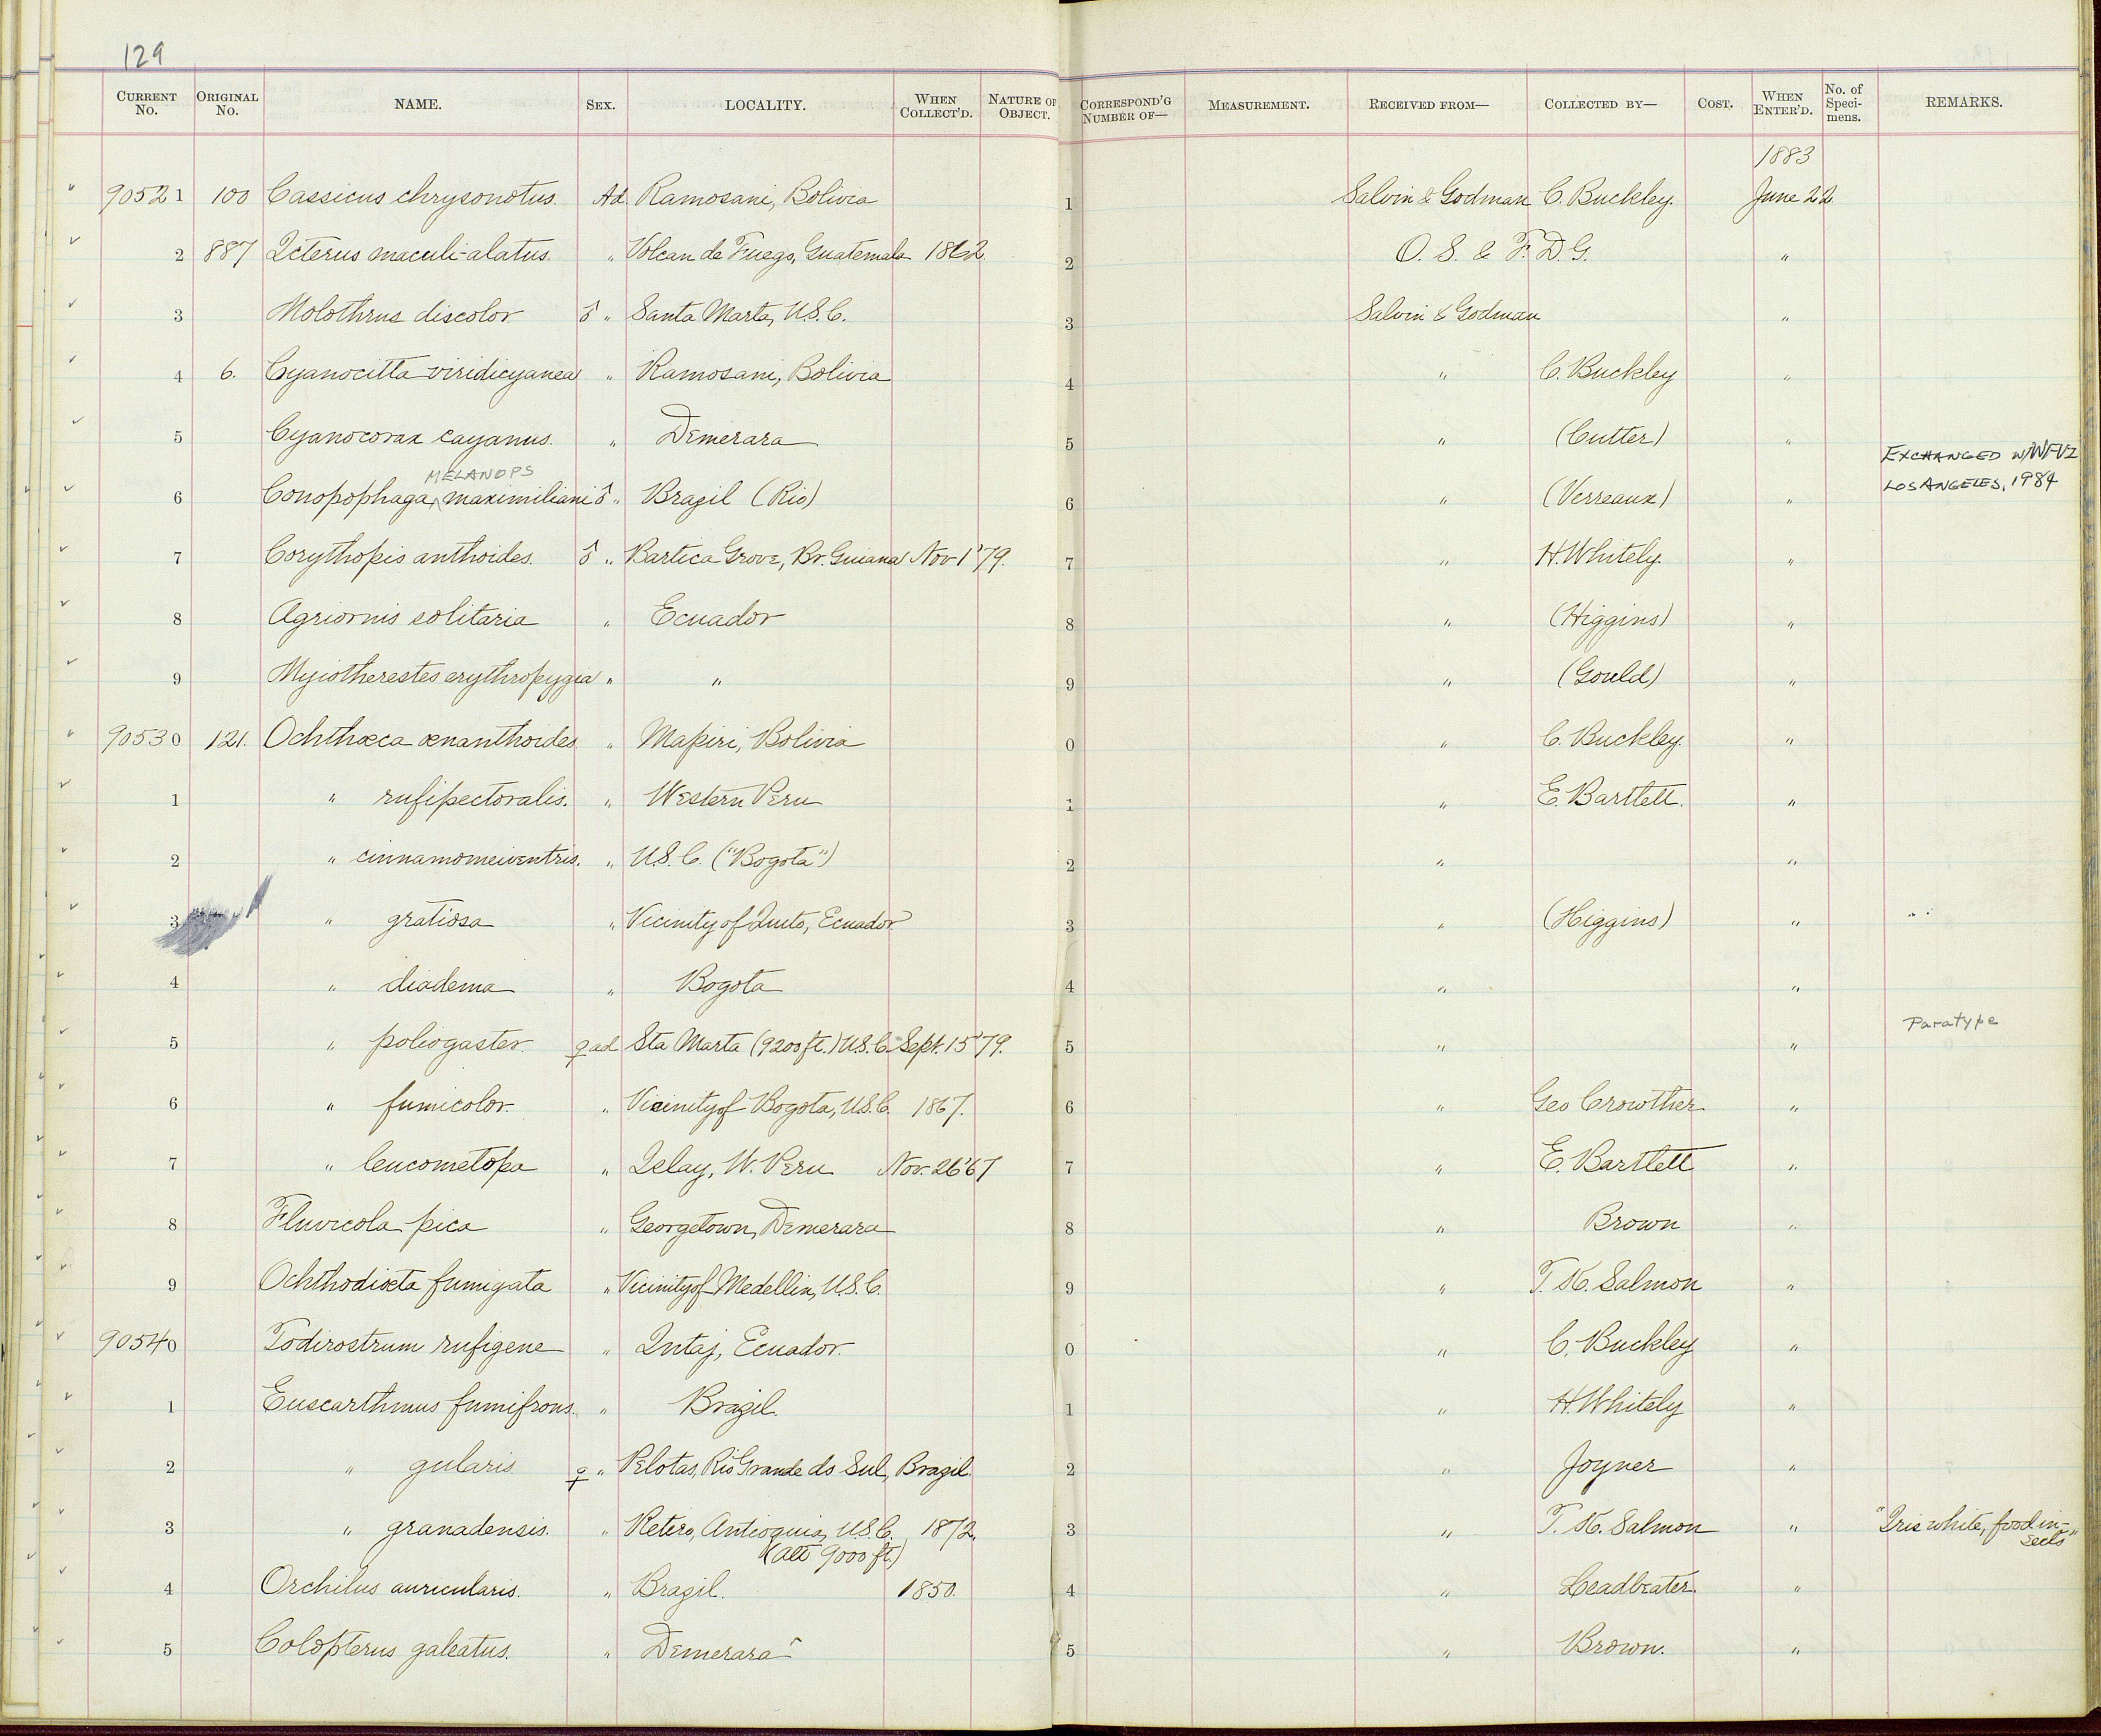 129
CURRENT No. ORIGINAL No. NAME. SEX. LOCALITY. WHEN COLLECT'D. NATURE OF OBJECT. CORRESPOND'G NUMBER OF— MEASUREMENT. RECEIVED FROM— COLLECTED BY— COST. WHEN ENTER'D. No. of Speci-mens. REMARKS.
1883
90521 100 Cassicus chrysonotus. Ad. Ramosani, Bolivia 1 Salvin & Godman C. Buckley. June 22
2 887 Icterus maculi-alatus. " Volcan de Fuego, Guatemala 1862 2 O. S. & F. D. G. "
3 Molothrus discolor ♂ " Santa Marta, U.S.C. 3 Salvin & Godman "
4 6. Cyanocitta viridicyanea " Ramosani, Bolivia 4 " C. Buckley "
5 Cyanocorax cayanus. " Demerara 5 " (Cutter) "
MELANOPS EXCHANGED W/WFVZ
6 Conopophaga ^ maximiliani ♂ " Brazil (Rio) 6 " (Verreaux) " LOS ANGELES, 1984
7 Corythopis anthoides. ♂ " Bartica Grove, Br. Guiana Nov 1 '79. 7 " H. Whitely. "
8 Agriornis solitaria " Ecuador 8 " (Higgins) "
9 Myiotherestes erythropygia " " 9 " (Gould) "
90530 121. Ochthœca œnanthoides " Mapiri, Bolivia 0 " C. Buckley. "
1 " rufipectoralis. " Western Peru 1 " E. Bartlett. "
2 " cinnamomeiventris. " U.S.C. ("Bogota") 2 " "
3 " gratiosa " Vicinity of Quito, Ecuador 3 " (Higgins) "
4 " diadema " Bogota 4 " "
Paratype
5 " poliogaster. ♀ ad Sta Marta (9200 ft.) U.S.C. Sept. 15 '79. 5 " "
6 " fumicolor. " Vicinity of Bogota, U.S.C. 1867. 6 " Geo Crowther "
7 " leucometopa " Islay, W. Peru Nov. 26 '67 7 " E. Bartlett "
8 Fluvicola pica " Georgetown, Demerara 8 " Brown "
9 Ochthodiœta fumigata " Vicinity of Medellin, U.S.C. 9 " T. K. Salmon "
90540 Todirostrum rufigene " Intaj, Ecuador. 0 " C. Buckley "
1 Euscarthmus fumifrons. " Brazil. 1 " H. Whitely "
2 " gularis ♀ " Pelotas, Rio Grande do Sul, Brazil. 2 " Joyner "
3 " granadensis. " Retiro, Antioquia, U.S.C. 1872. 3 " T. K. Salmon " "Iris white, food in-
(alt 9000 ft.) sects"
4 Orchilus auricularis. " Brazil. 1850. 4 " Leadbeater. "
5 Colopterus galeatus. " Demerara 5 " Brown. "